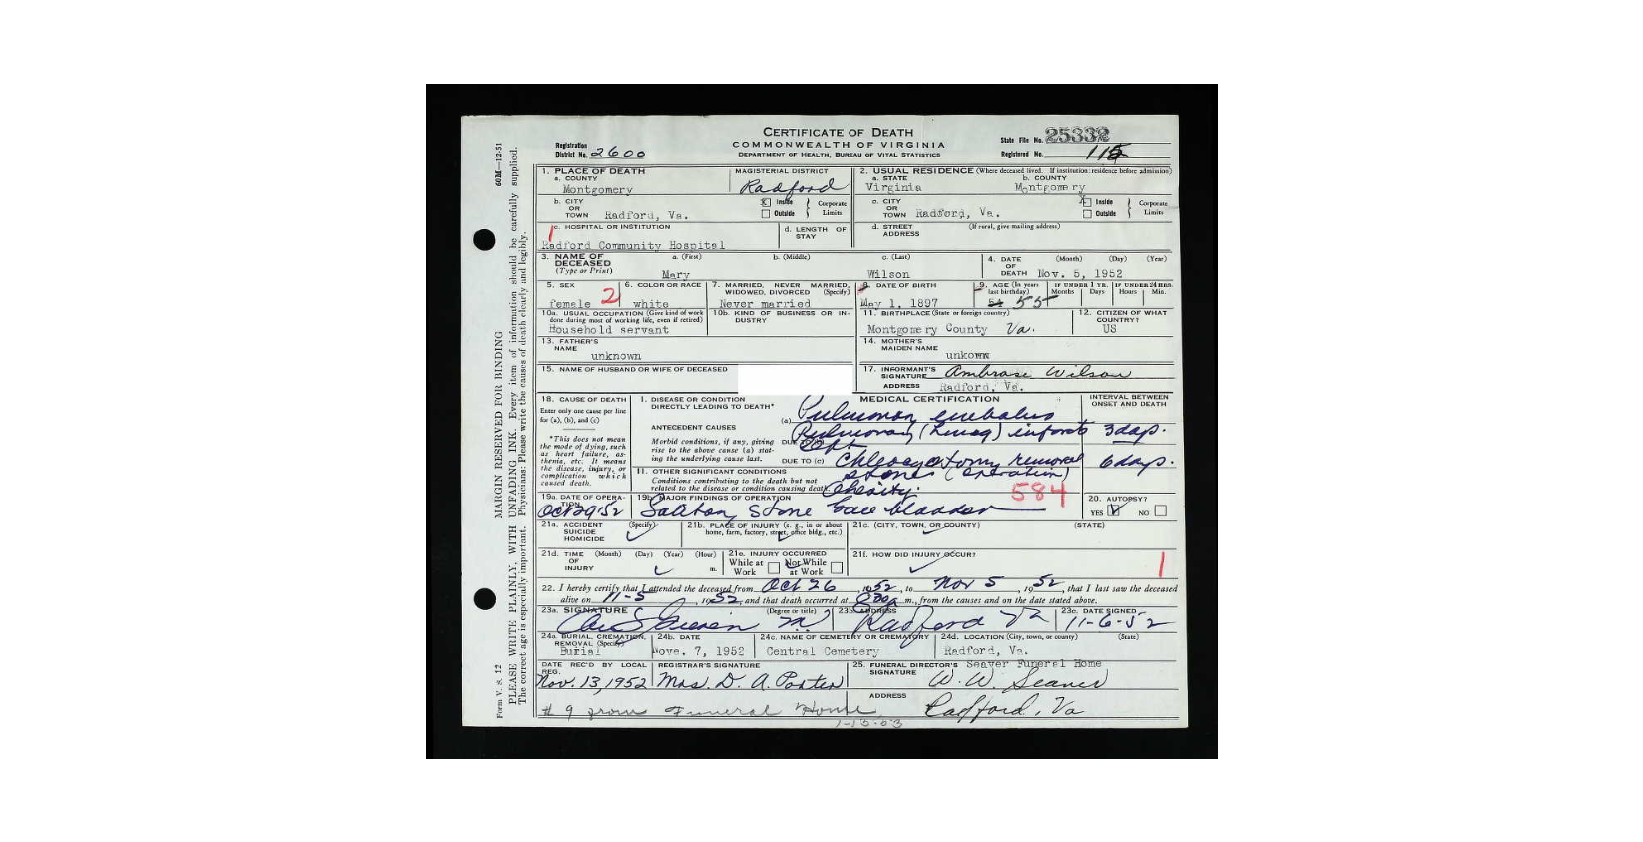 CERTIFICATE OF DEATH
COMMONWEALTH OF VIRGINIA
DEPARTMENT OF HEALTH, BUREAU OF VITAL STATISTICS
Registration District No. 2600
State File No. 25332
Registered No. 115
60M—12-51
MARGIN RESERVED FOR BINDING
PLEASE WRITE PLAINLY, WITH UNFADING INK. Every item of information should be carefully supplied.
The correct age is especially important. Physicians: Please write the causes of death clearly and legibly.
Form V. S. 12
1. PLACE OF DEATH
a. COUNTY
Montgomery
MAGISTERIAL DISTRICT
Radford
2. USUAL RESIDENCE (Where deceased lived. If institution: residence before admission)
a. STATE
Virginia
b. COUNTY
Montgomery
b. CITY OR TOWN Radford, Va.
Inside
Outside
Corporate Limits
c. CITY OR TOWN Radford, Va.
Inside
Outside
Corporate Limits
1
c. HOSPITAL OR INSTITUTION
Radford Community Hospital
d. LENGTH OF STAY
d. STREET ADDRESS
(If rural, give mailing address)
3. NAME OF DECEASED
(Type or Print)
a. (First)
Mary
b. (Middle)
c. (Last)
Wilson
4. DATE OF DEATH
(Month) (Day) (Year)
Nov. 5, 1952
5. SEX
female 2
6. COLOR OR RACE
white
7. MARRIED, NEVER MARRIED, WIDOWED, DIVORCED (Specify)
Never married
8. DATE OF BIRTH
May 1, 1897
9. AGE (In years last birthday)
54 55
IF UNDER 1 YR.
Months Days
IF UNDER 24 HRS.
Hours Min.
10a. USUAL OCCUPATION (Give kind of work done during most of working life, even if retired)
Household servant
10b. KIND OF BUSINESS OR INDUSTRY
11. BIRTHPLACE (State or foreign country)
Montgomery County Va.
12. CITIZEN OF WHAT COUNTRY?
US
13. FATHER'S NAME
unknown
14. MOTHER'S MAIDEN NAME
unkown
15. NAME OF HUSBAND OR WIFE OF DECEASED
17. INFORMANT'S SIGNATURE Ambrose Wilson
ADDRESS Radford, Va.
18. CAUSE OF DEATH
Enter only one cause per line for (a), (b), and (c)
*This does not mean the mode of dying, such as heart failure, asthenia, etc. It means the disease, injury, or complication which caused death.
MEDICAL CERTIFICATION
INTERVAL BETWEEN ONSET AND DEATH
I. DISEASE OR CONDITION DIRECTLY LEADING TO DEATH*
(a) Pulmonary embolus
ANTECEDENT CAUSES
Morbid conditions, if any, giving rise to the above cause (a) stating the underlying cause last.
Pulmonary infarcts 3 days.
DUE TO (c) removal 6 days.
stones (operation)
II. OTHER SIGNIFICANT CONDITIONS
Conditions contributing to the death but not related to the disease or condition causing death.
Obesity.
584
19a. DATE OF OPERATION
Oct 29-52
19b. MAJOR FINDINGS OF OPERATION
Solitary Stone Gall bladder
20. AUTOPSY?
YES NO
21a. ACCIDENT SUICIDE HOMICIDE
(Specify)
21b. PLACE OF INJURY (e. g., in or about home, farm, factory, street, office bldg., etc.)
21c. (CITY, TOWN, OR COUNTY)
(STATE)
21d. TIME OF INJURY
(Month) (Day) (Year) (Hour)
m.
21e. INJURY OCCURRED
While at Work
Not While at Work
21f. HOW DID INJURY OCCUR?
1
22. I hereby certify that I attended the deceased from Oct 26, 1952, to Nov 5, 1952, that I last saw the deceased
alive on 11-5, 1952, and that death occurred at m., from the causes and on the date stated above.
23a. SIGNATURE
(Degree or title)
23b. ADDRESS
Radford Va
23c. DATE SIGNED
11-6-52
24a. BURIAL, CREMATION, REMOVAL (Specify)
Burial
24b. DATE
Nove. 7, 1952
24c. NAME OF CEMETERY OR CREMATORY
Central Cemetery
24d. LOCATION (City, town, or county)
(State)
Radford, Va.
DATE REC'D BY LOCAL REG.
Nov. 13, 1952
REGISTRAR'S SIGNATURE
Mrs. D. A. Porter
25. FUNERAL DIRECTOR'S SIGNATURE
Seaver Funeral Home
W. W. Seaver
ADDRESS
Radford, Va
# 9 from Funeral Home
1-15-53